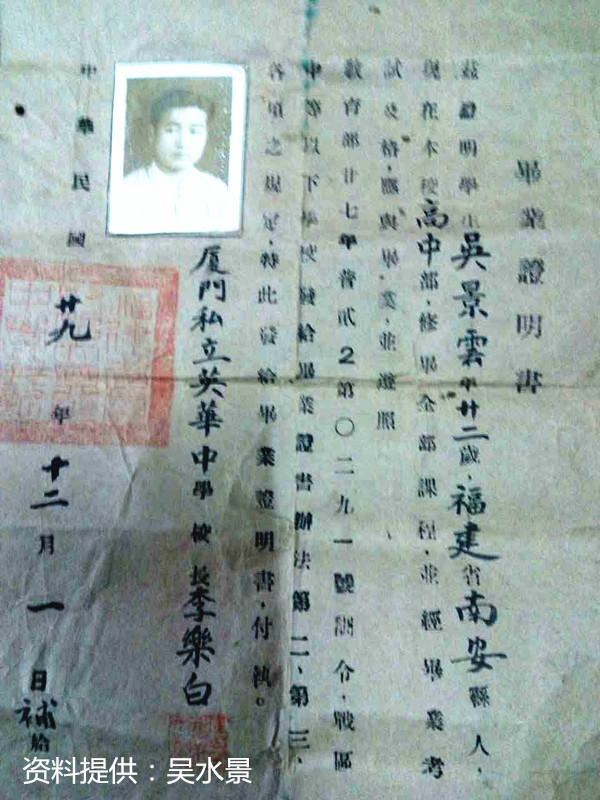 畢業證明書
茲證明學生吳景雲年廿二歲，福建省南安縣人，
現在本校高中部，修畢全部課程，並經畢業考
試及格，應與畢業，並遵照
教育部廿七年普貳2第〇二九一號訓令，戰區
中等以下學校發給畢業證書辦法第二、第三、
各項之規定，特此發給畢業證明書，付執。
厦門私立英華中學校長李樂白
中華民國廿九年十二月一日補給
资料提供：吴水景